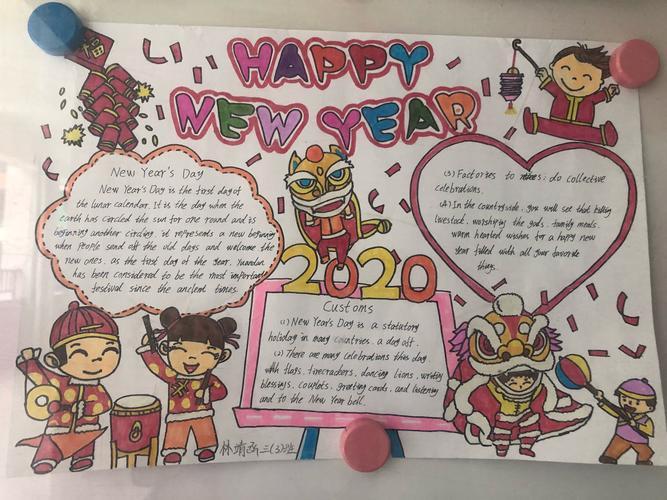 福
HAPPY
NEW YEAR
New Year's Day
New Year's Day is the first day of
the lunar calendar. It is the day when the
earth has circled the sun for one round and is
beginning another circling. it represents a new beginning
when people send off the old days and welcome the
new ones. as the first day of the year. Yuandan
has been considered to be the most important
festival since the ancient times.
2020
Customs
(1) New Year's Day is a statutory
holiday in many countries. a day off.
(2) There are many celebrations this day
with flags, firecrackers, dancing lions, writing
blessings, couplets, greeting cards, and listening
and to the New Year bell.
(3) Factories to do collective
celebrations.
(4) In the countryside, you will see that killing
livestock, worshiping the gods, family meals,
warm hearted wishes for a happy new
year filled with all your favorite
things.
林靖 三(3)班